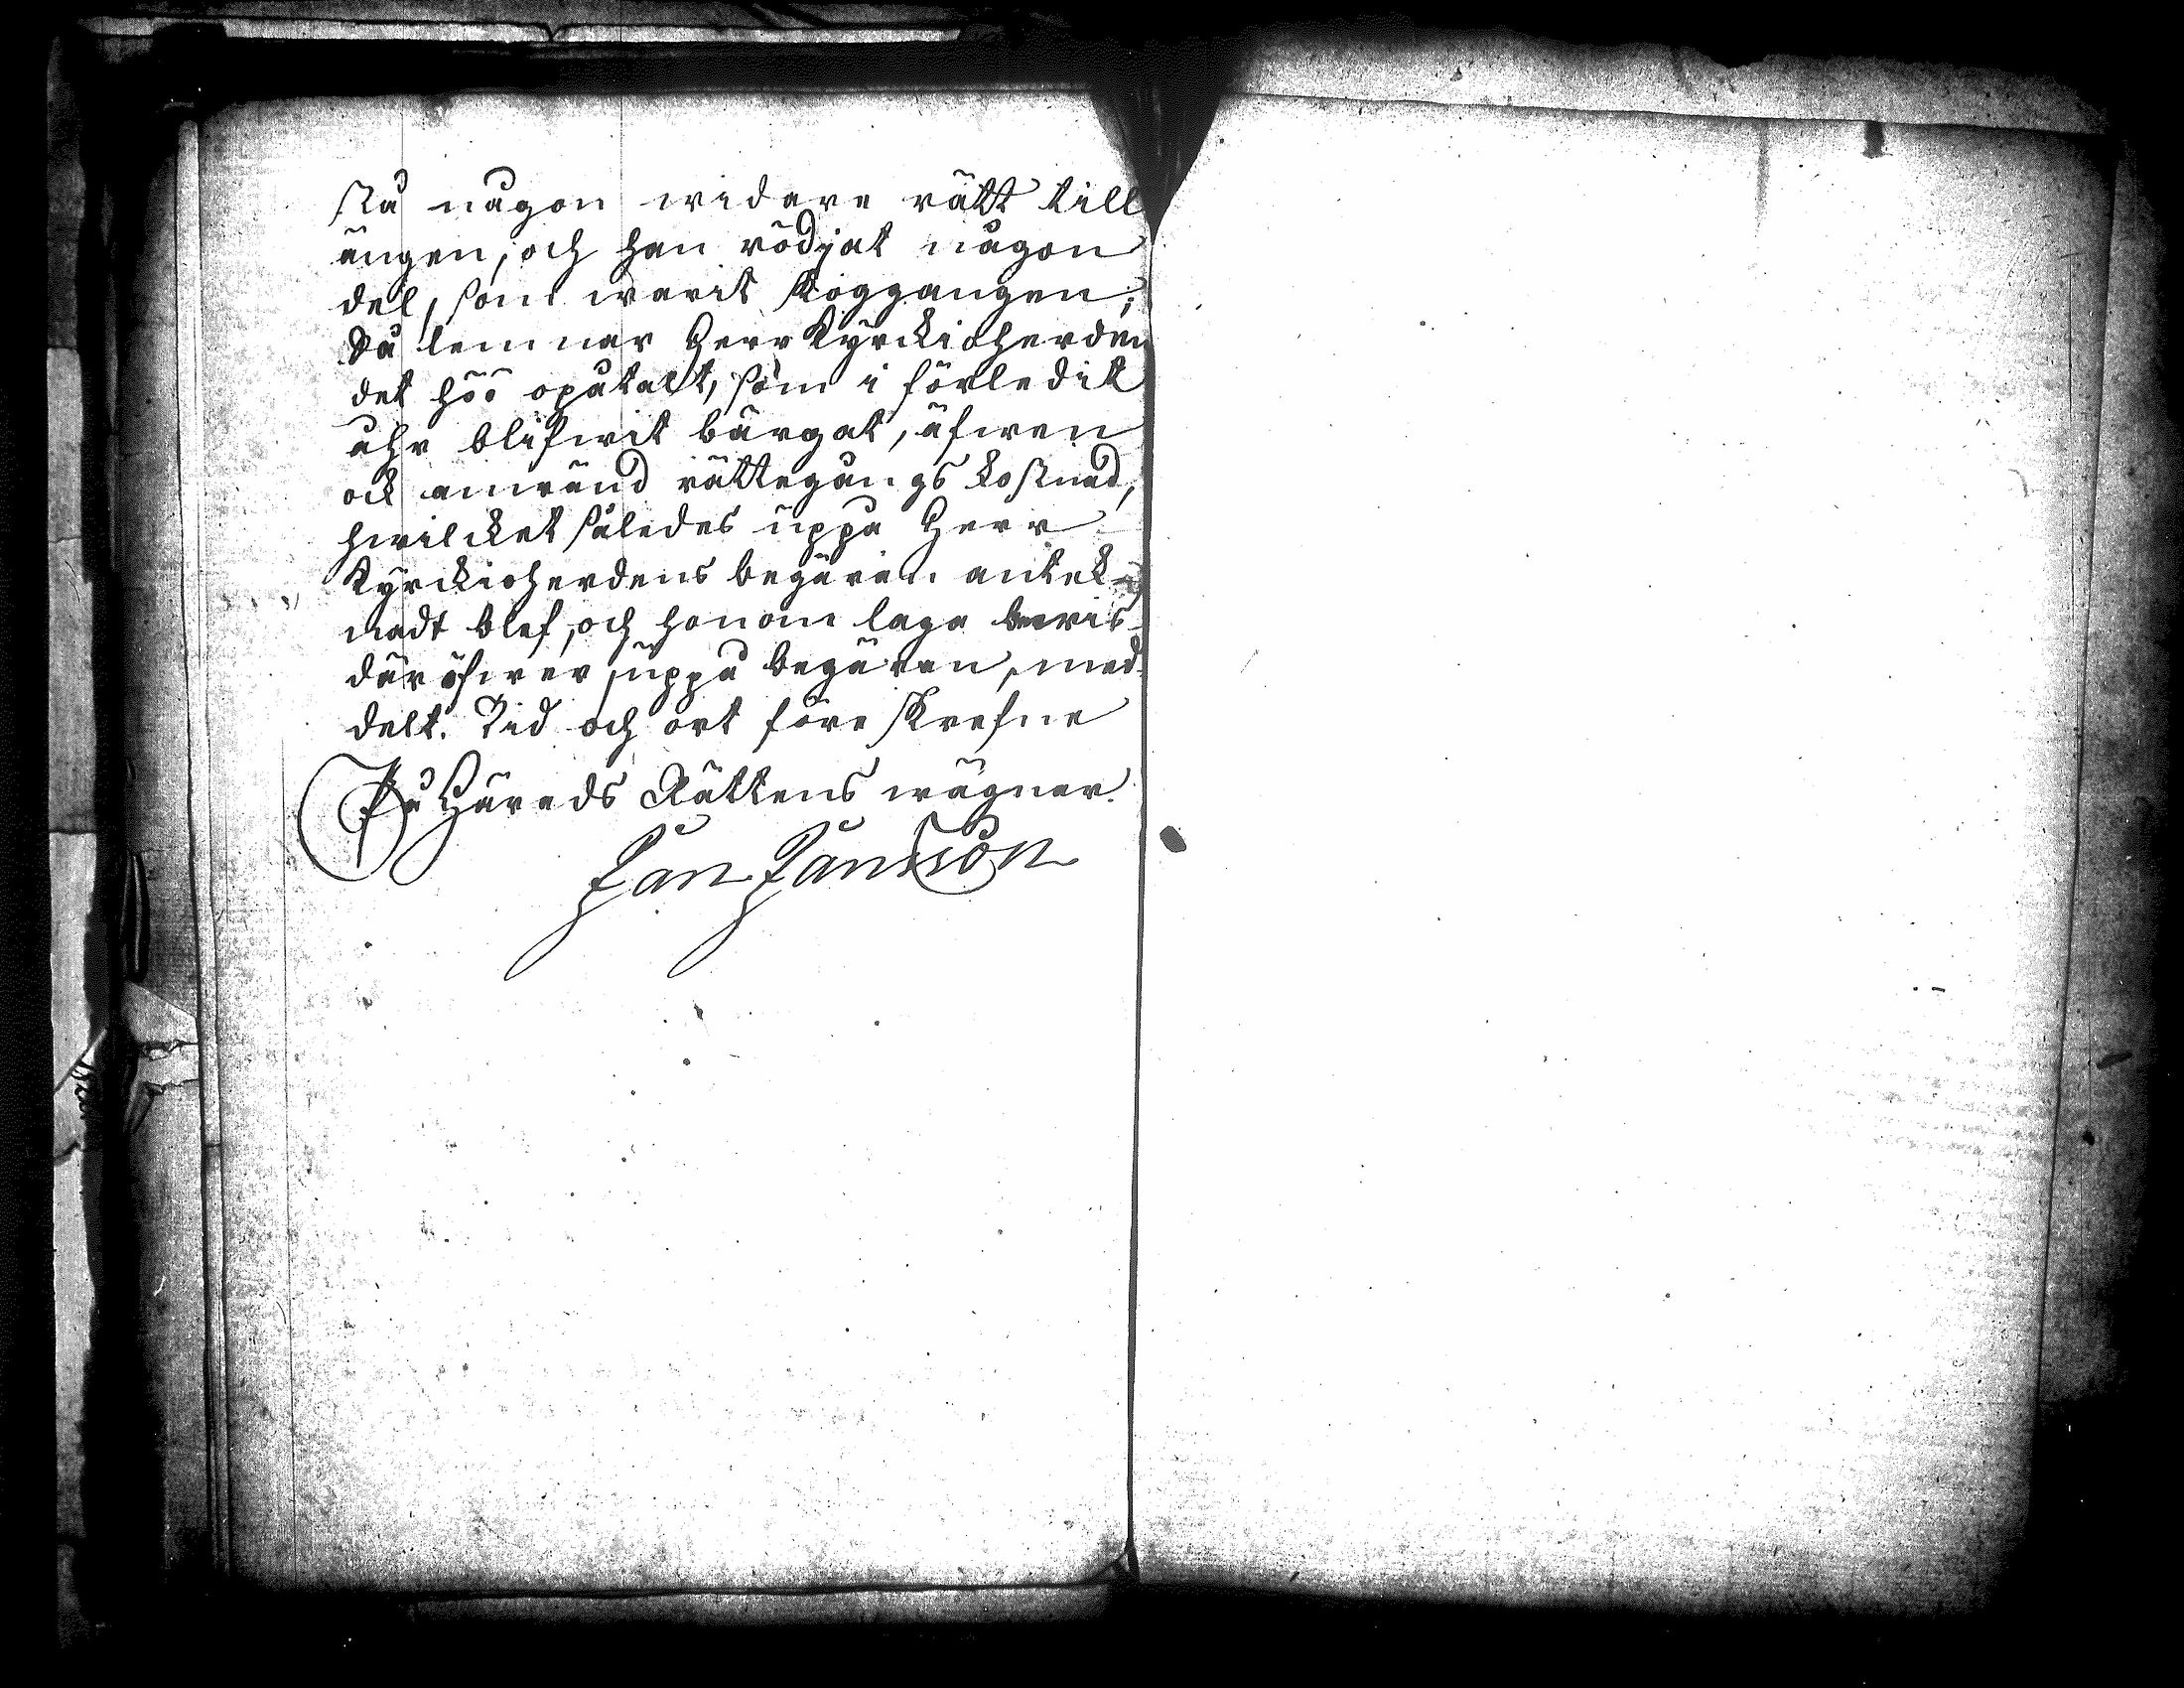 stå någon widare rätt till
ängen, och han rödjat någon
del, som warit skoggangen;
Så lemnar Herr Kyrckioherden
det höö opåtalt, som i förledit
åhr blifwit bärgat, äfwen
ock anwänd rättegångs kostnad,
hwilcket således uppå Herr
Kyrckioherdens begäran anteck-
nadt blef, och honom laga bewis
däröfwer, uppå begäran, med-
delt. Tid och ort föreskrefne
På Härads Rättens wägnar.
Jan Jansson